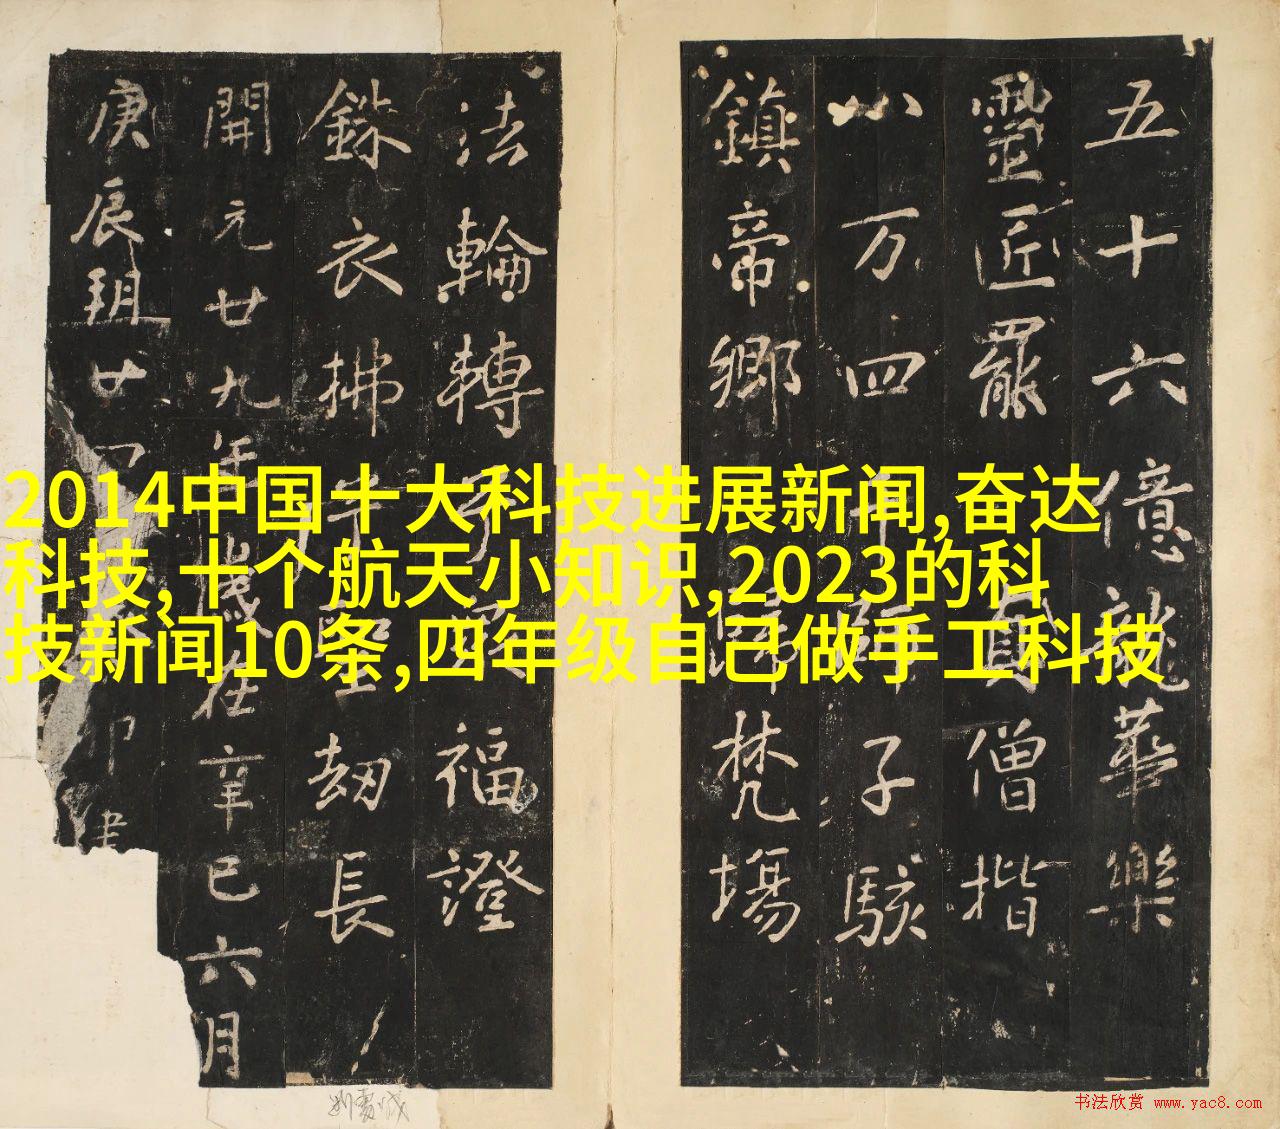 五十六億龍華樂
靈匠罷 僧揩
八万四千 子駭
鎮帝鄉 梵場
法輪轉 福證
銖衣拂 劫長
開元廿九年歲在辛巳六月
庚辰朔廿
2014中国十大科技进展新闻,奋达
科技,十个航天小知识,2023的科
技新闻10条,四年级自己做手工科技
书法欣赏 www.yac8.com